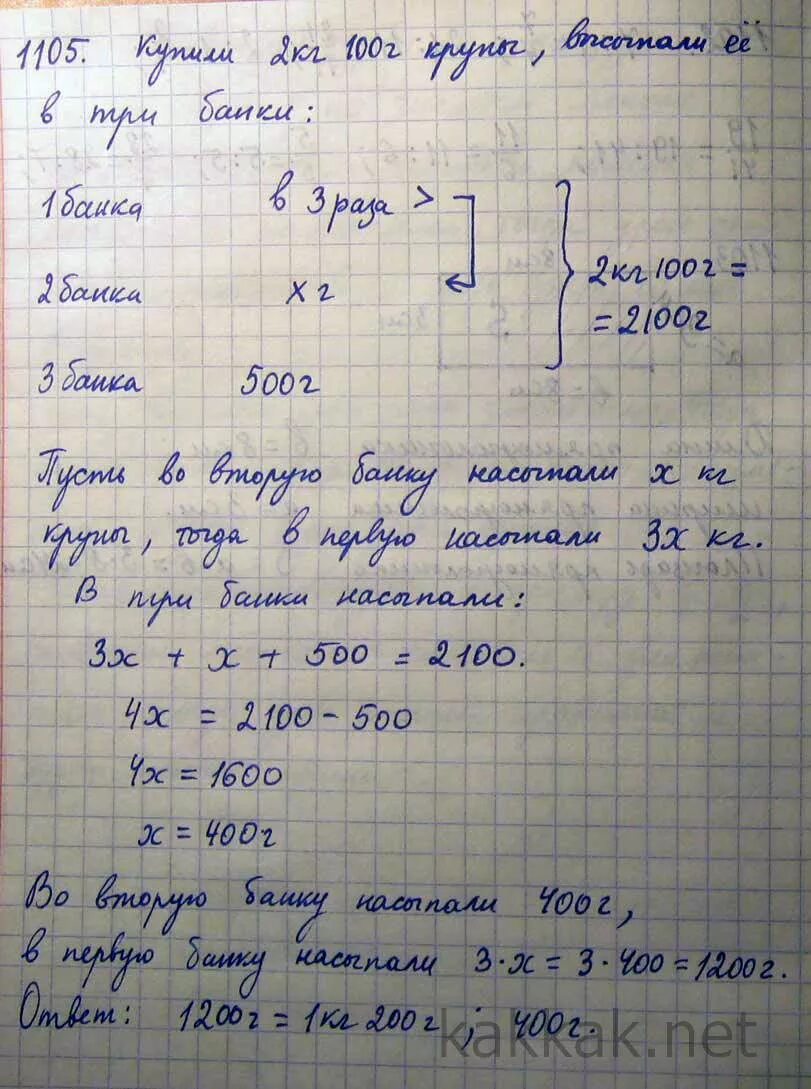 1105. Купили 2кг 100г крупы, высыпали её
в три банки:
1 банка в 3 раза >
2 банка х г
3 банка 500г
2кг 100г =
= 2100г
Пусть во вторую банку насыпали х кг
крупы, тогда в первую насыпали 3х кг.
В три банки насыпали:
3х + х + 500 = 2100.
4х = 2100 - 500
4х = 1600
х = 400г
Во вторую банку насыпали 400г,
в первую банку насыпали 3·х = 3·400 = 1200г.
Ответ: 1200г = 1кг 200г ; 400г.
kakkak.net